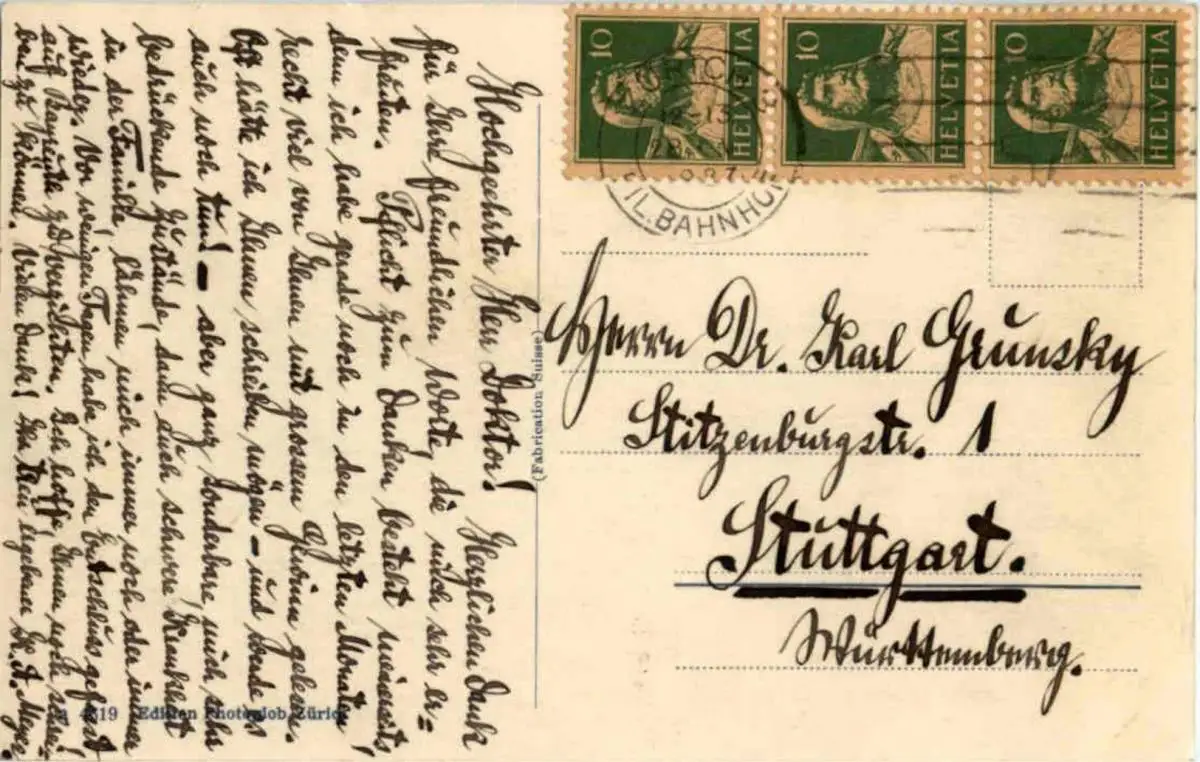 Hochgeehrter Herr Doktor! Herzlichen Dank
für Ihre freundlichen Worte, die mich sehr er=
freuten. Pflicht zum Danken besteht meinerseits
denn ich habe gerade noch in den letzten Monaten
recht viel von Ihnen mit grossem Gewinn gelesen.
Oft hätte ich Ihnen schreiben mögen – und werde es
auch noch tun! – aber ganz sonderbare, mich sehr
bedrückende Zustände, dann auch schwere Krankheit
in der Familie, lähmen mich immer noch oder immer
wieder. Vor wenigen Tagen habe ich den Entschluss gefasst
auf Bayreuth zu Ich hoffe, Ihnen noch schrei=
ben zu können. Vielen Dank! Ihr ergebener K. A. Meyer
4819 Edition Photoglob Zürich
(Fabrication Suisse)
10 HELVETIA
10 HELVETIA
10 HELVETIA
FIL. BAHNHOF
Herrn Dr. Karl Grunsky
Stitzenburgstr. 1
Stuttgart.
Württemberg.